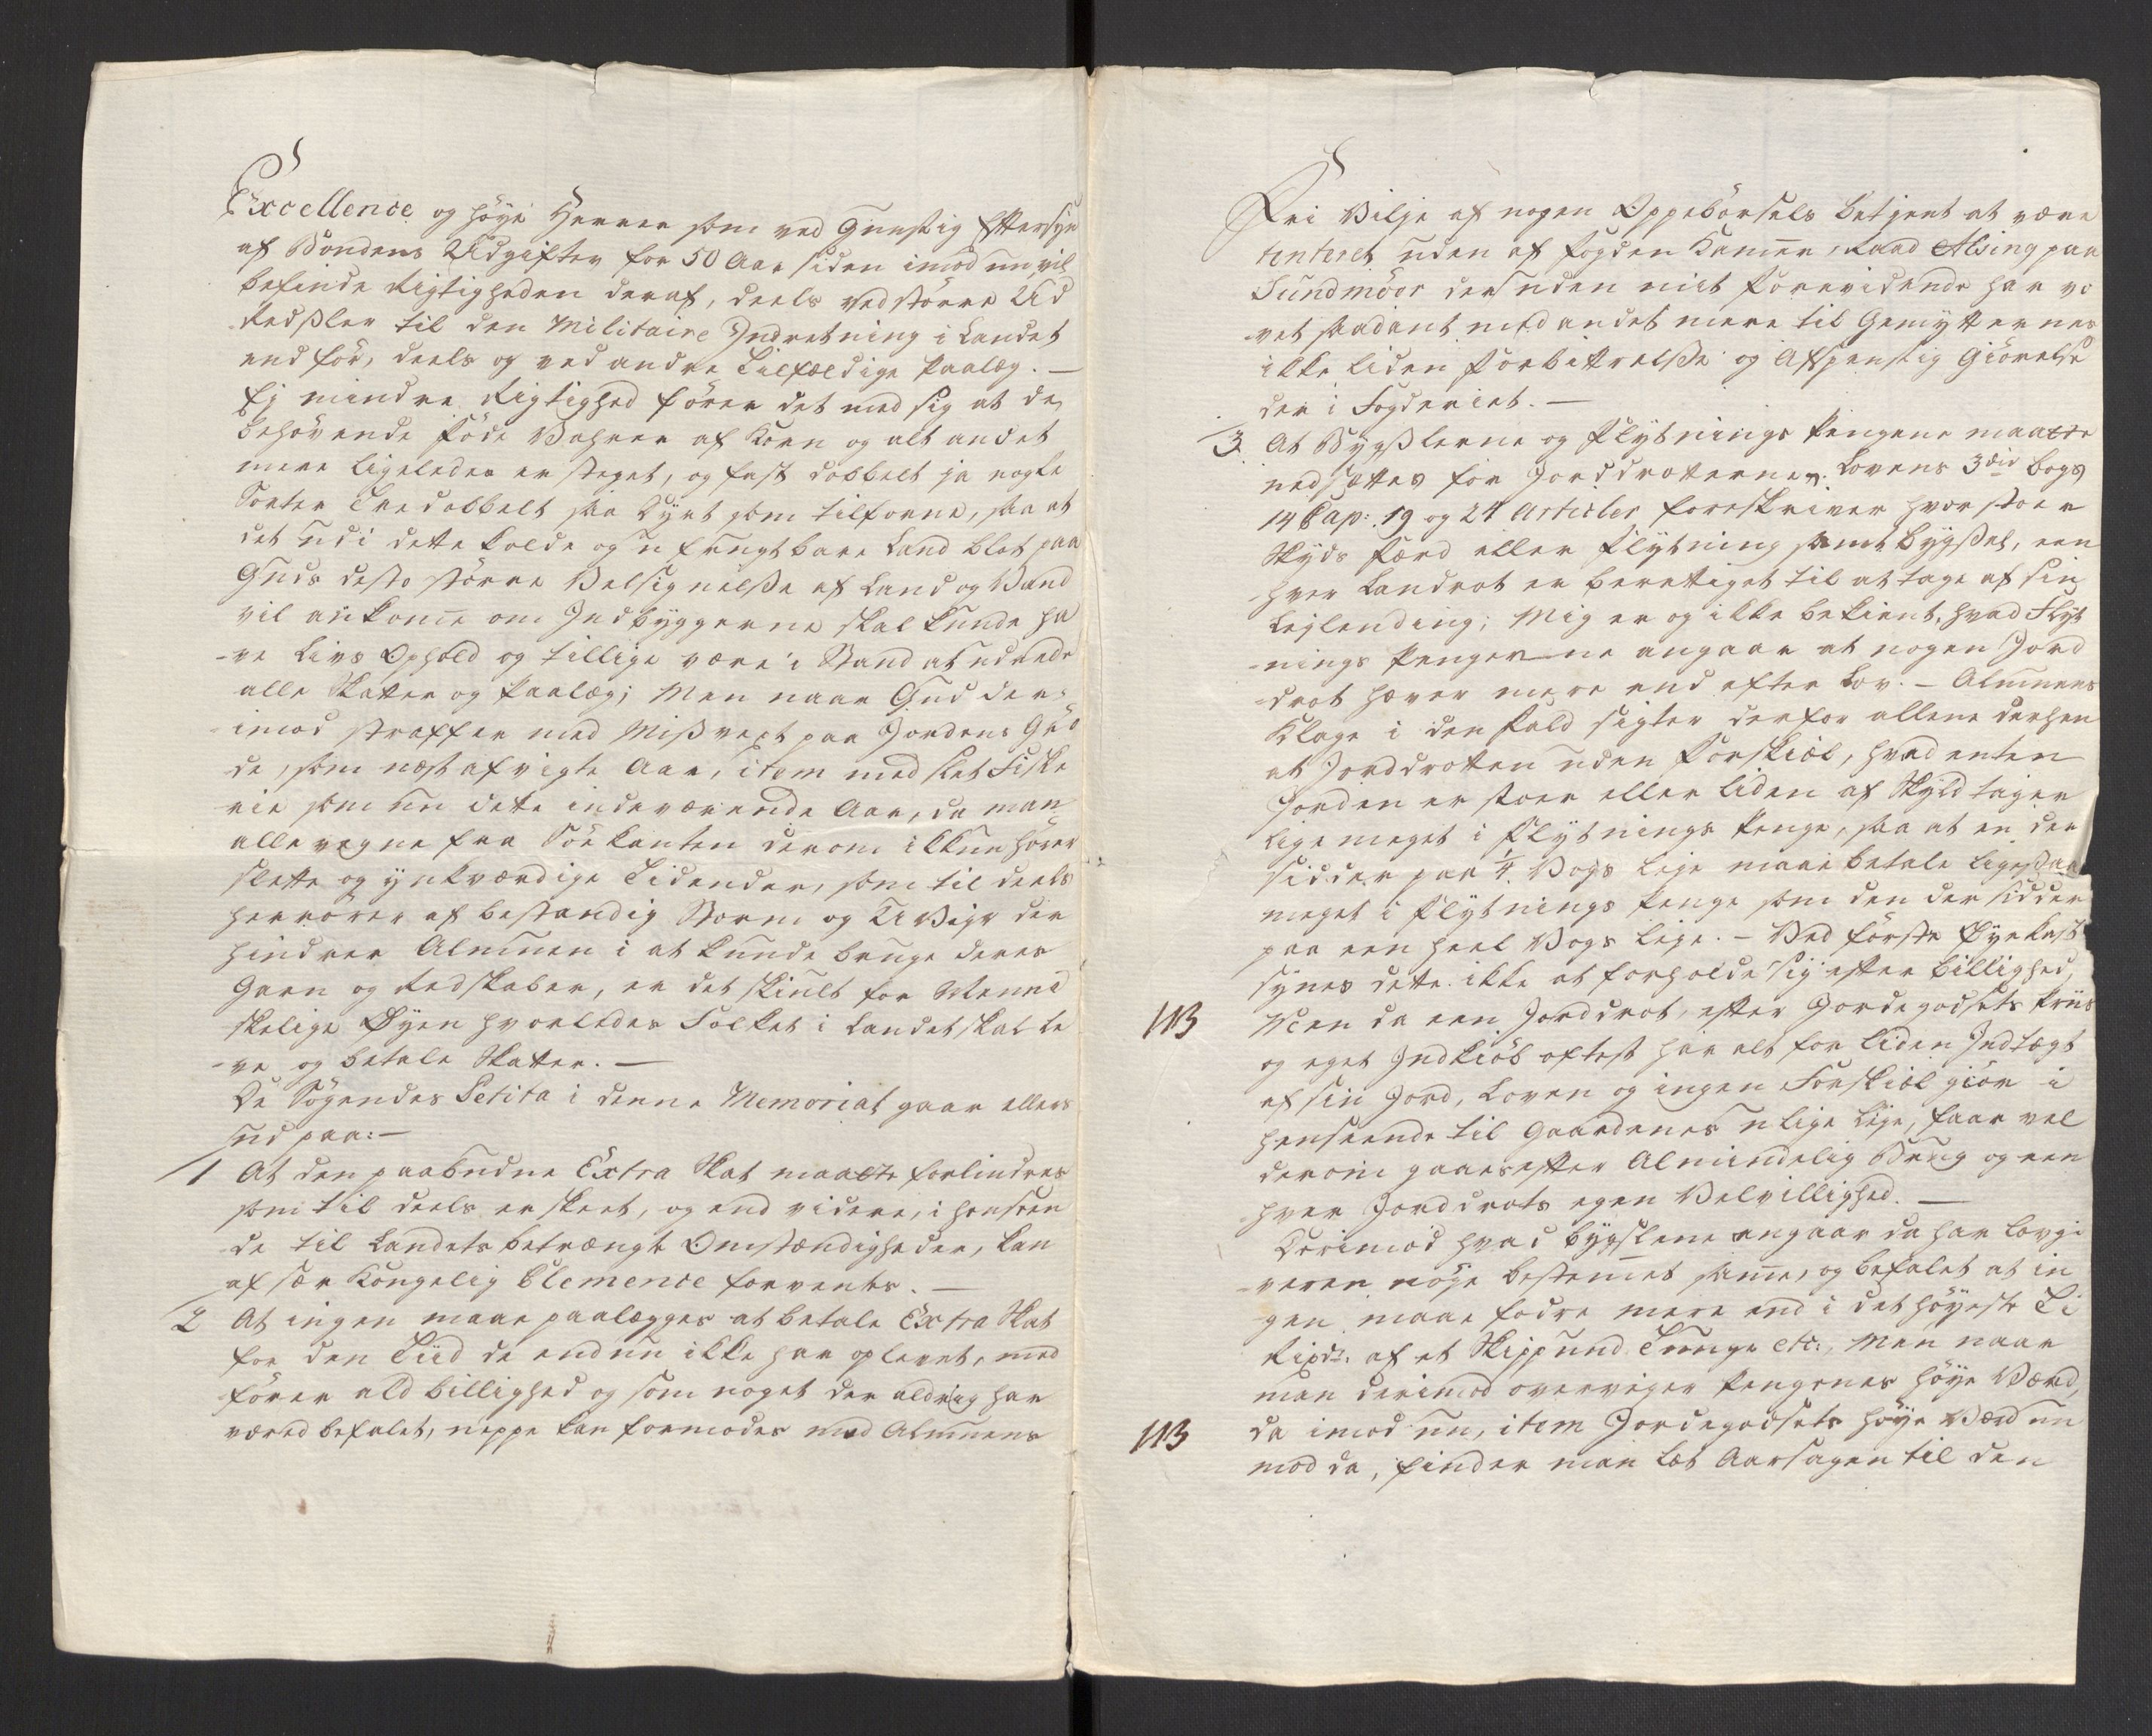 Excellence og höye Herrer som ved Gunstig Eftersyn
af Bondens Udgifter for 50 Aar siden imod nu vil
befinde Rigtigheden deraf, deels ved större Ud
redsler til den Militaire Indretning i Landet
end för, deels og ved andre Tilfældige Paalæg. —
Ej mindre Rigtighed förer det med sig at de
behövende Föde Vahrer af Korn og alt andet
mere ligeledes er steget, og fast dobbelt ja nogle
Sorter Tredobbelt saa Dyrt som tilforne, saa at
det udi dette kolde og ufrugtbare Land blot paa
Guds desto större Velsignelsse af Land og Vand
vil ankome om Indbyggerne skal kunde ha
-ve Livs Ophold og tillige være i Stand at udrede
alle Skatter og Paalæg; Men naar Gud der-
imod straffer med Misvext paa Jordens Gröd
de, som næst afvigte Aar, item med slet Fiske
rie som nu dette indeværende Aar, da man
alle vegne fra Söe kanten derom ikkun hörer
slette og ynkværdige Tidender, som til deels
herrörer af bestandig Storm og Uveyr der
hindrer Almuen i at kunde bruge deres
Garn og Redskaber, er det skiult for Menne
skelige Öyen hvorledes Folket i Landet skal le
-ve og betale Skatter. —
De Sögendes Petita i denne Memorial gaar ellers
ud paa: —
1 At den paabudne Extra Skat maatte forlindres
som til deels er skeet, og end videre, i henseen
de til Landets betrængte Omstændigheder, kan
af sær Kongelig Clemence forventes. —
2 At ingen maae paalægges at betale Extra Skat
for den Tiid de endnu ikke har oplevet, med
förer ald billighed og som noget der aldrig har
været befalet, neppe kan formodes med Almuens
Frie Vilje af nogen Oppebörsels betjent at være
tenteret uden af Fogden Kammer-Raad Alsing paa
Sundmöer der uden mit Forevidende har vo
vet saadant med andet mere til Gemytternes
ikke liden Forbittrelsse og Afspenstig Giörelse
der i Fogderiet. —
3. At Bygslerne og Flytnings Pengene maatte
nedsættes for Jorddrotterne. Lovens 3die bogs
14 Cap: 19 og 24 Articler foreskriver hvor stoer
Skyds Færd eller Flytning samt bygsel, een
hver Landrot er berettiget til at tage af sin
Leylending; Mig er og ikke bekient, hvad Flyt
-nings Pengerne angaar at nogen Jord
-drot hæver mere end efter Lov. — Almuens
Klage i den Fald sigter derfor allene derhen
at Jorddrotten uden Forskiöl, hvad enten
Jorden er stoer eller liden af Skyld tager
lige meget i Flytnings Penge, saa at en der
sidder paa 1/4 Vogs Leje maae betale ligesaa
meget i Flytnings Penge som den der sidder
paa een heel Vogs Leje. — Ved förste Öyekast
synes dette ikke at forholde sig efter billighed,
NB Men da een Jorddrot, efter Jordegodsets Priis
og eget Indkiöb oftest har alt for liden Indtægt
af sin Jord, Loven og ingen Forskiöl giör i
henseende til Gaardenes ulige Leje, faar vel
derom gaaes efter Almindelig Brug og een
hver Jorddrots egen Velvillighed. —
Derimod hvad bygslene angaar da har Lovgi
veren nöje bestemet same, og befalet at in
gen maae fodre mere end i det höyeste Ti
Rixdr. af et Skippund Tunge etc:, Men naar
man derimod overveyer Pengenes höye Værd,
NB da imod nu, item Jordegodsets höye Værd nu
mod da, finder man let Aarsagen til den